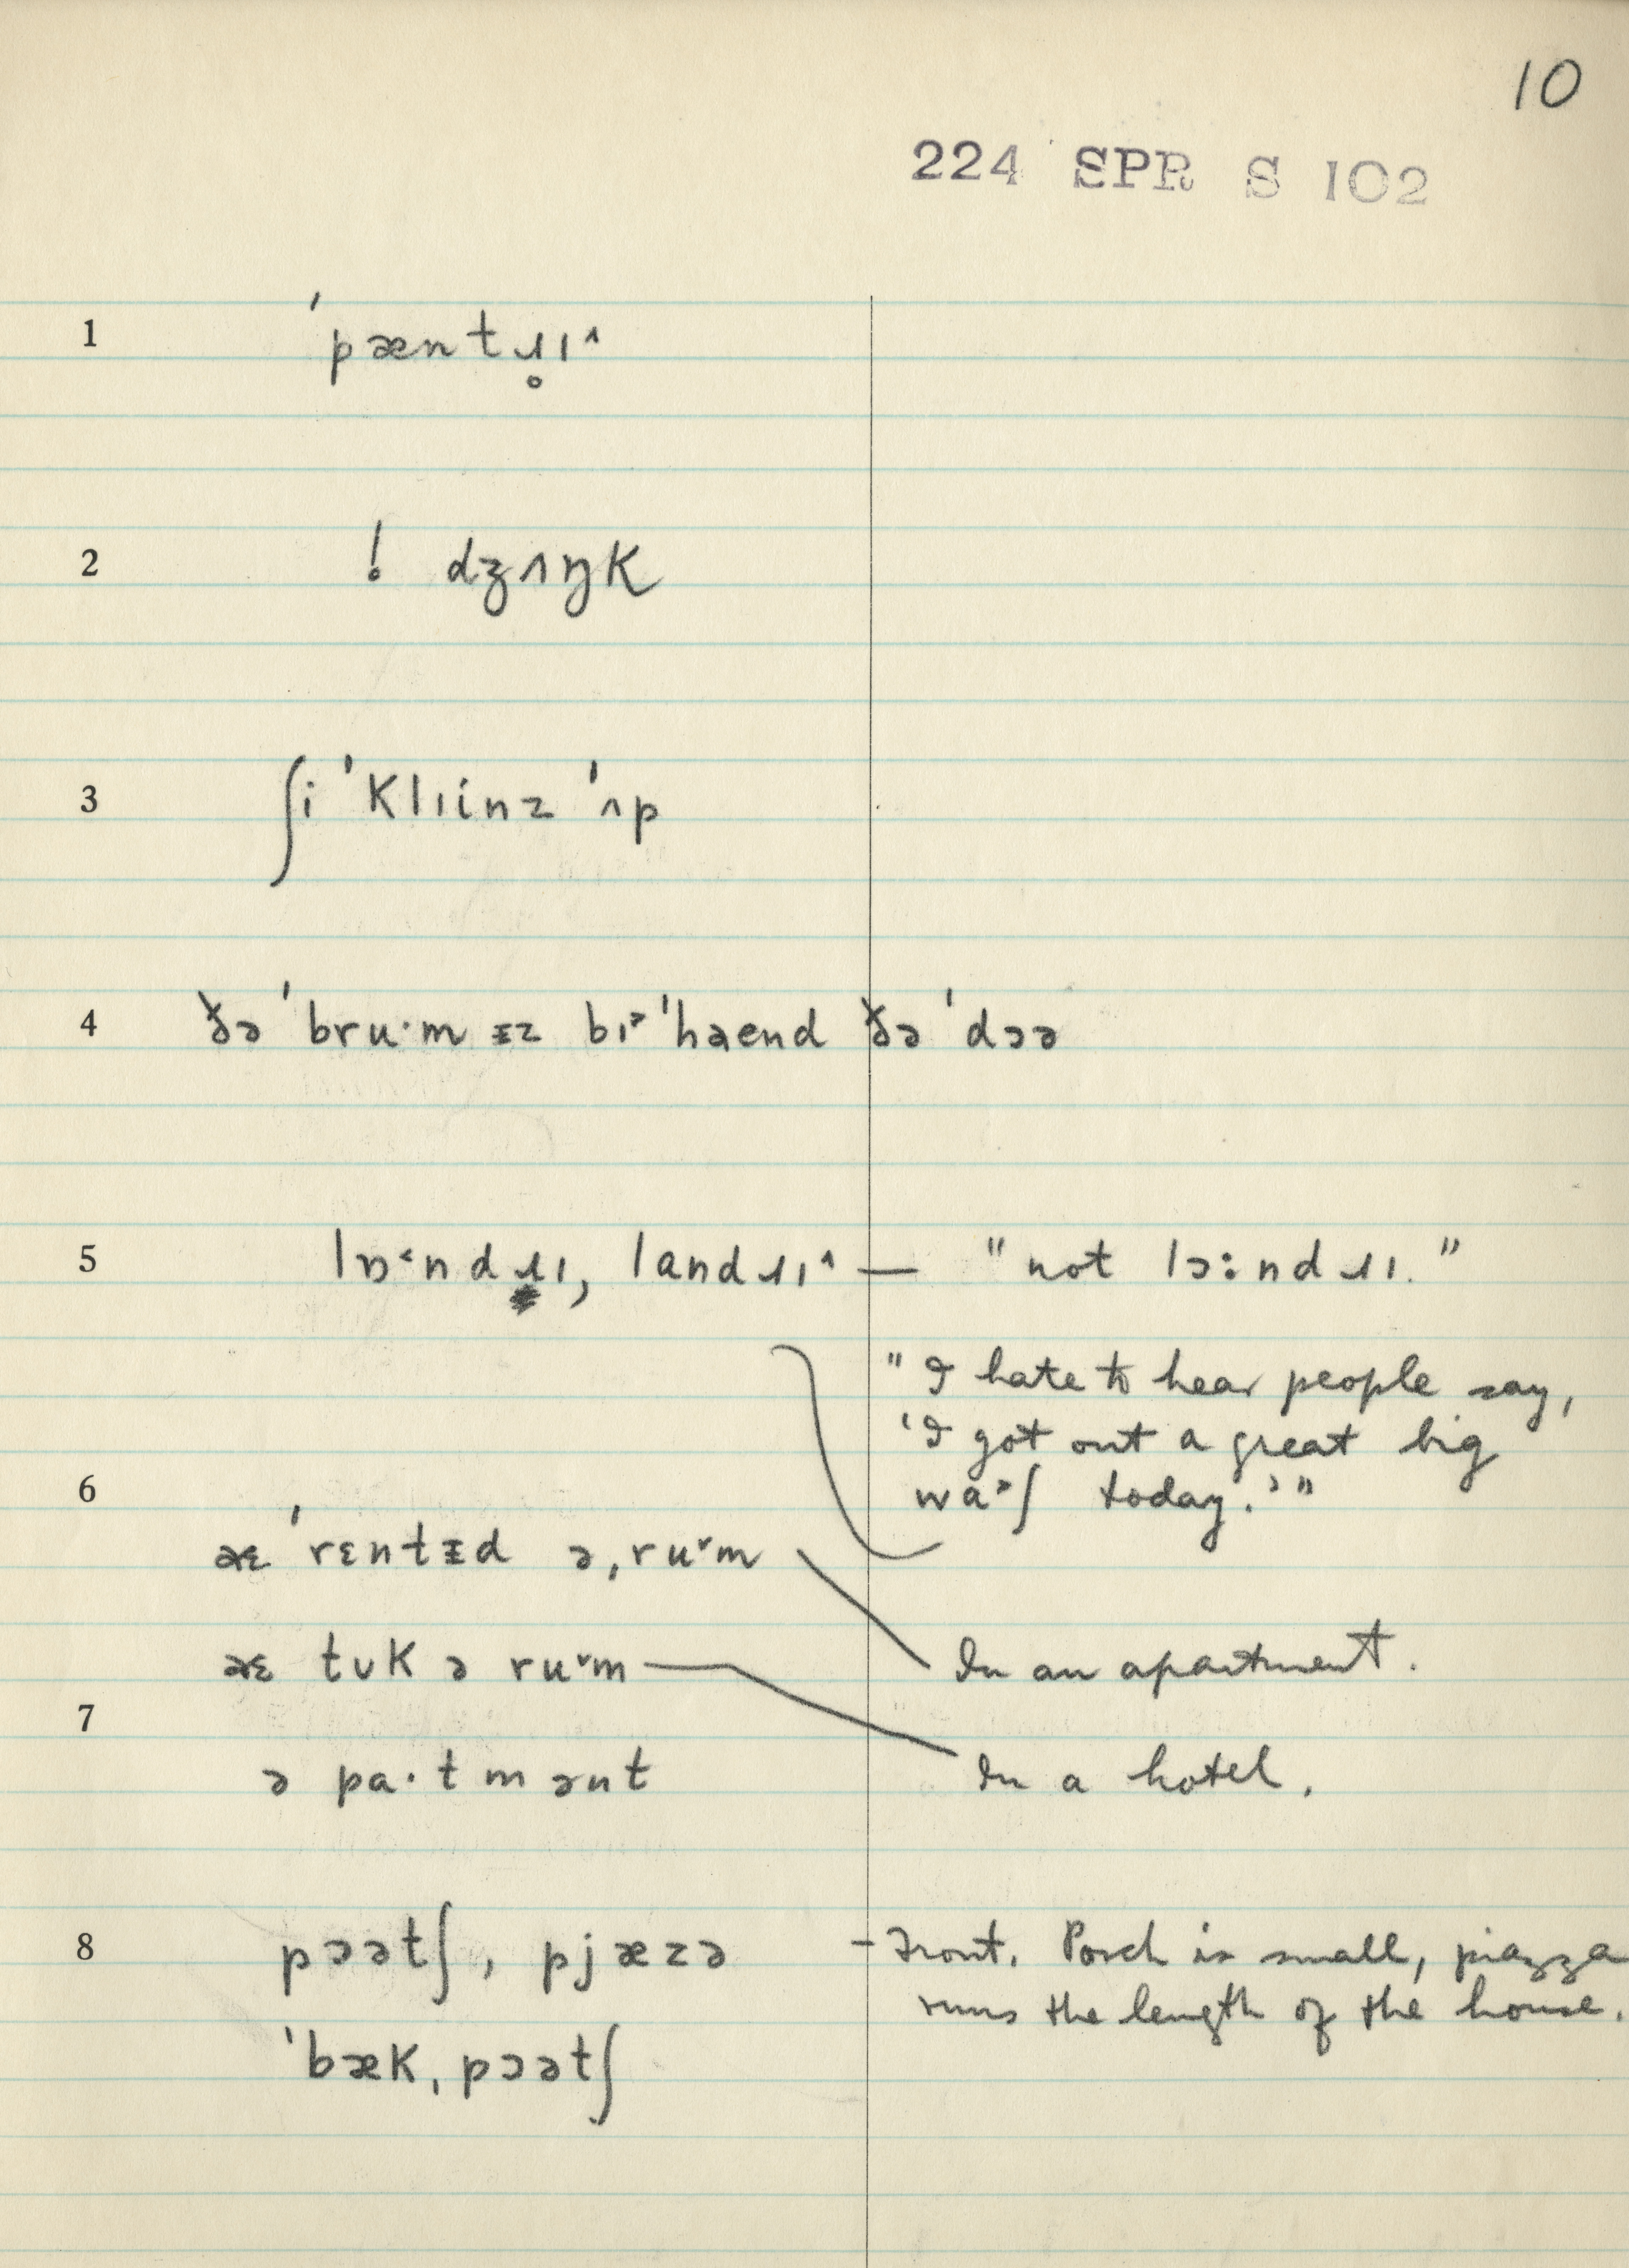 10
224 SPR S 102
1 ˈpæntɹ̥ɪ˄
2 ! dʒʌŋK
3 ʃi ˈKlɪinz ˈʌp
4 ðə ˈbru·m ᵻz bɪ˃ ˈhaend ðə ˈdɔə
5 lɒ˂ndɹɪ, landɹɪ˄ — "not lɔ:ndɹɪ."
"I hate to hear people say,
'I got out a great big
6 wa˃ʃ today.'"
aɛ ˈrɛntᵻd ə ˌru˅m
aɛ tʊK ə ru˅m — In an apartment.
7
ə pa·tmənt In a hotel.
8 pɔətʃ, pjæzə – Front. Porch is small, piazza
runs the length of the house.
ˈbæK ˌpɔətʃ